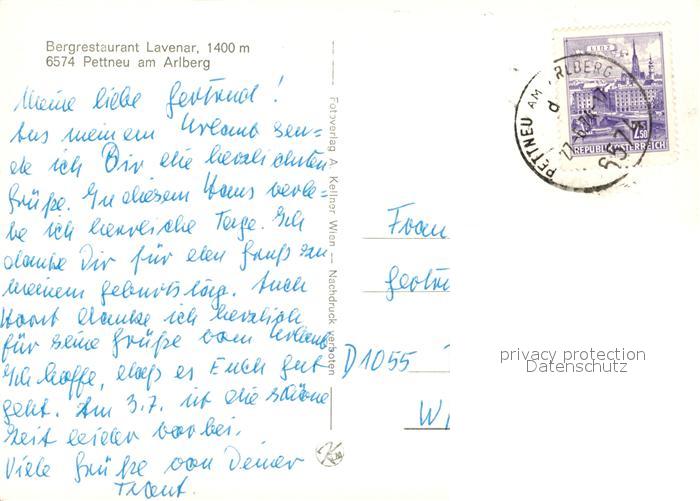 Bergrestaurant Lavenar, 1400 m
6574 Pettneu am Arlberg
Meine liebe Gertraud!
Aus meinem Urlaub sen=
de ich Dir die herzlichsten
Grüße. In diesem Haus verle=
be ich herrliche Tage. Ich
danke Dir für den Gruß zu
meinem Geburtstag. Auch
Horst danke ich herzlich
für seine Grüße vom Urlaub
Ich hoffe, daß es Euch gut
geht. Am 3.7. ist die schöne
Zeit leider vorbei.
Viele Grüße von Deiner
Traut.
Fotoverlag A. Kellner, Wien — Nachdruck verboten
LINZ
2.50
REPUBLIK ÖSTERREICH
PETTNEU AM ARLBERG
6574
Frau
Gertr
D 1055
W
privacy protection
Datenschutz